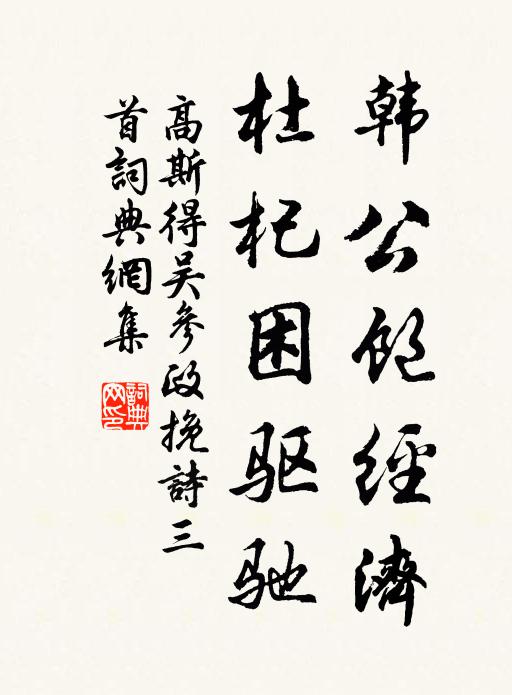 韩公飽經濟
杜杞困驱驰
高斯得吴参政挽詩三
首詞典網集
詞典
网印